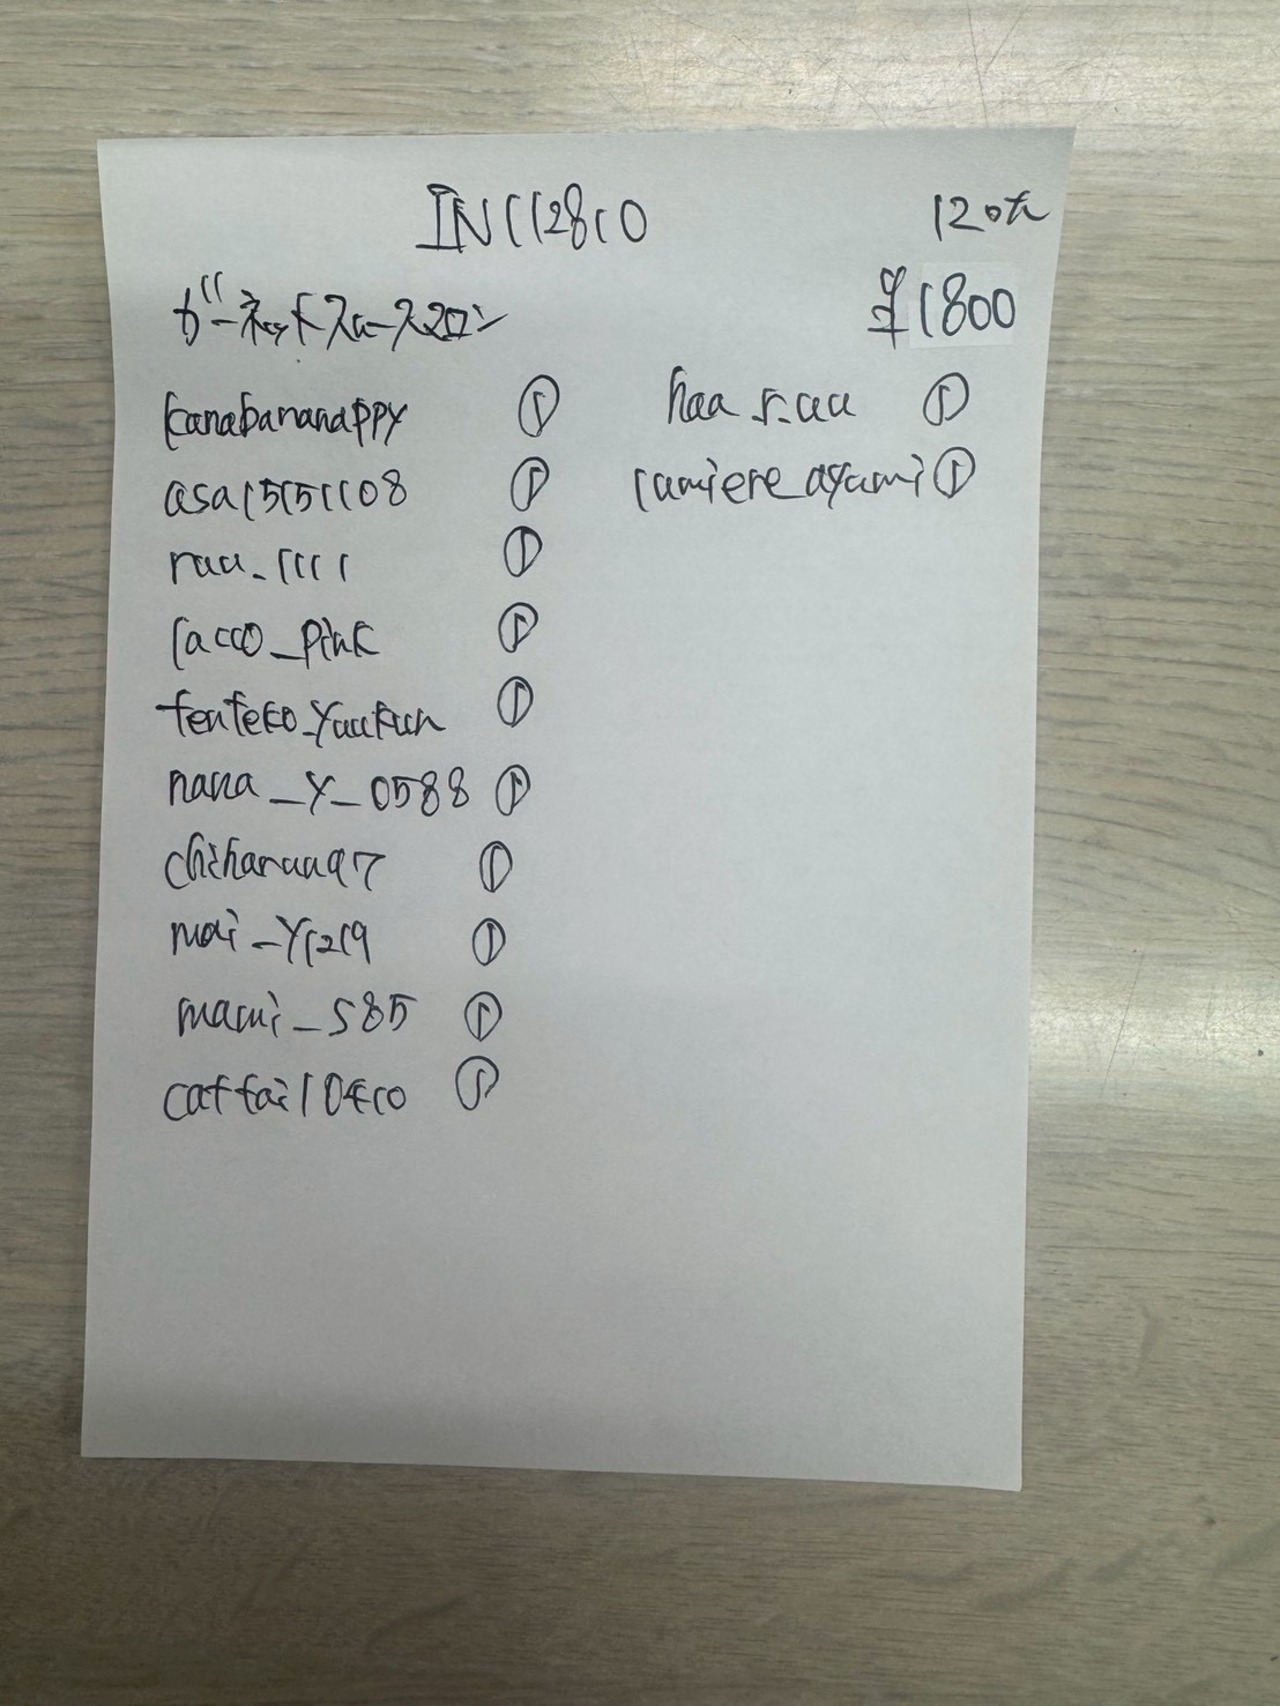 IN112810
120th
ガーネットスペースマロン
¥1800
kanabananappy ①
asa15151108 ①
raa_1111 ①
racco_pink ①
tenteko_yuukun ①
nana_y_0588 ①
chiharuu97 ①
mai_y1219 ①
mami_s85 ①
cattail0410 ①
haa_s.au ①
lumiere_ayami ①